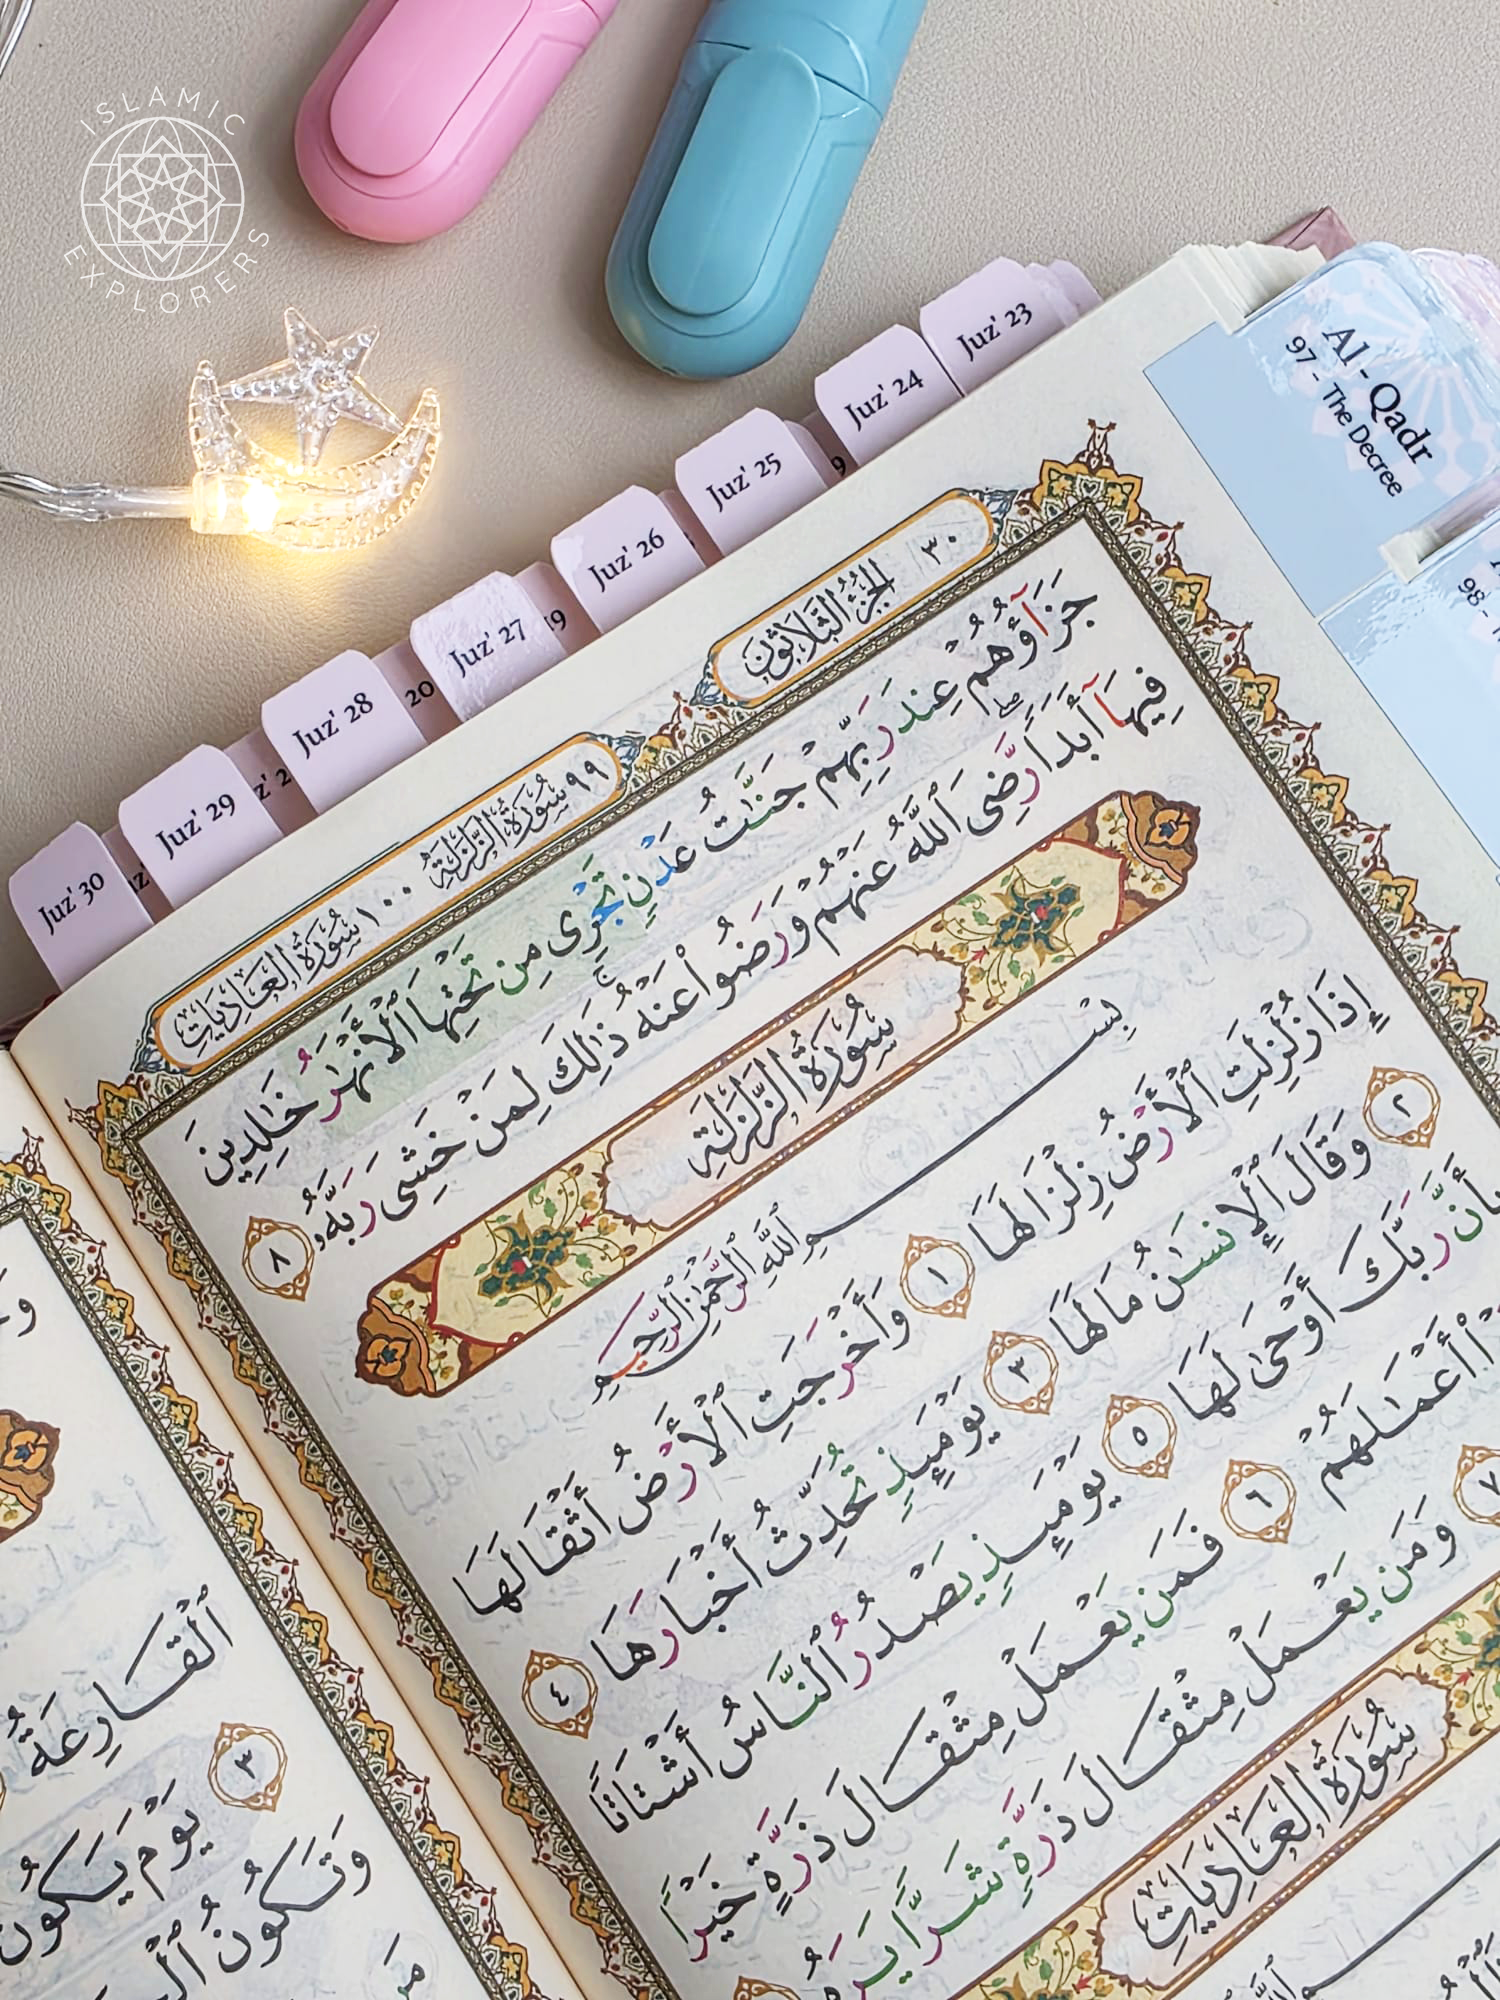 ISLAMIC
EXPLORERS
Juz' 23
Juz' 24
Juz' 25
Juz' 26
Juz' 27
Juz' 28
Juz' 29
Juz' 30
19
20
Al - Qadr
97 - The Decree
98 -
الجُزْءُ الثَّلَاثُونَ ٣٠
٩٩ سُورَةُ الزَّلْزَلَةِ ١٠٠ سُورَةُ العَادِيَاتِ
جَزَآؤُهُمْ عِندَ رَبِّهِمْ جَنَّٰتُ عَدْنٍ تَجْرِى مِن تَحْتِهَا ٱلْأَنْهَٰرُ خَٰلِدِينَ
فِيهَآ أَبَدًا ۖ رَّضِىَ ٱللَّهُ عَنْهُمْ وَرَضُوا۟ عَنْهُ ۚ ذَٰلِكَ لِمَنْ خَشِىَ رَبَّهُۥ ٨
سُورَةُ الزَّلْزَلَةِ
بِسْمِ ٱللَّهِ ٱلرَّحْمَٰنِ ٱلرَّحِيمِ
إِذَا زُلْزِلَتِ ٱلْأَرْضُ زِلْزَالَهَا ١ وَأَخْرَجَتِ ٱلْأَرْضُ أَثْقَالَهَا
٢ وَقَالَ ٱلْإِنسَٰنُ مَا لَهَا ٣ يَوْمَئِذٍ تُحَدِّثُ أَخْبَارَهَا ٤
بِأَنَّ رَبَّكَ أَوْحَىٰ لَهَا ٥ يَوْمَئِذٍ يَصْدُرُ ٱلنَّاسُ أَشْتَاتًا
أَعْمَٰلَهُمْ ٦ فَمَن يَعْمَلْ مِثْقَالَ ذَرَّةٍ خَيْرًا
٧ وَمَن يَعْمَلْ مِثْقَالَ ذَرَّةٍ شَرًّا يَرَهُۥ
سُورَةُ العَادِيَاتِ
ٱلْقَارِعَةُ
٣ يَوْمَ يَكُونُ
وَتَكُونُ